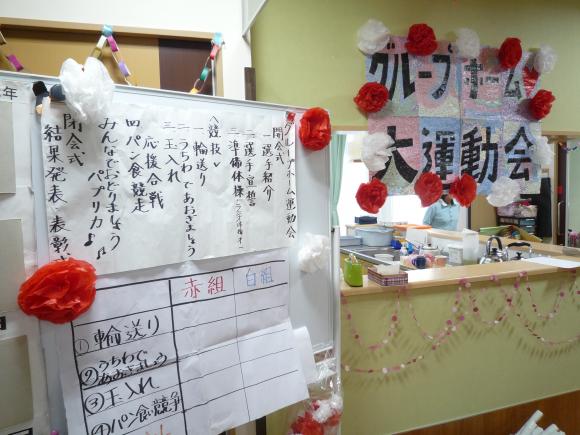 グループホーム
大運動会
グループホーム運動会
開会式
一 選手紹介
二 選手宣誓
三 準備体操
＜競技＞
一 輪送り
二 うちわであおぎましょう
三 玉入れ
応援合戦
四 パン食競走
みんなでおどりましょう
パプリカ♪
閉会式
結果発表 表彰式
赤組 白組
① 輪送り
② うちわであおぎましょう
③ 玉入れ
④ パン食競争